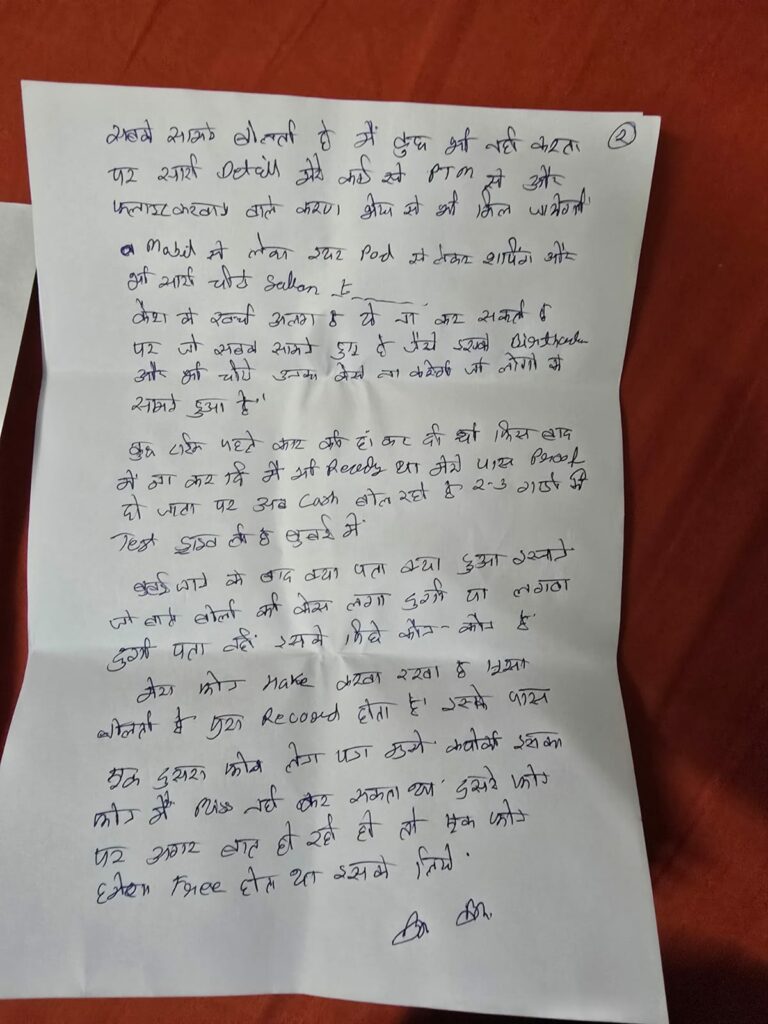 सबके सामने बोलती है मैं कुछ भी नहीं करता (2)
पर सारी Detail मेरे कार्ड से PTM से और
फ्लाइट करवाई वाले भी मिल जायेगी
Mobil से लेकर इयर Pod से लेकर शापिंग और
भी सारी चीजें Sallon है
कैश में खर्चा अलग है ये ना कर सकती है
पर जो सबके सामने हुए है जैसे इसकी
और भी चीजें उनका कैसे ना करेगी जो लोगों के
सामने हुआ है"
कुछ टाईम पहले कार की हां कर दी थी फिर बाद
में ना कर दि मैं भी Ready था मेरे पास Proof
हो जाता पर अब Cash बोल रही है 2-3 गाडी कि
Test ड्राइव ली है मुंबई में
मुंबई जाने के बाद क्या पता क्या हुआ इसने
जो बाते बोली की केस लगा दुंगी या लगवा
दुंगी पता नहीं इसके पिछे कौन-कौन है
मेरा फोन Hake करवा रखा है ऐसा
बोलती है पुरा Record होता है। इसके पास
एक दुसरा फोन लेना पडा मुझे क्योंकी इसका
फोन मैं Miss नहीं कर सकता था दुसरे फोन
पर अगर बात हो रही हो तो एक फोन
हमेशा Free होता था इसके लिये.